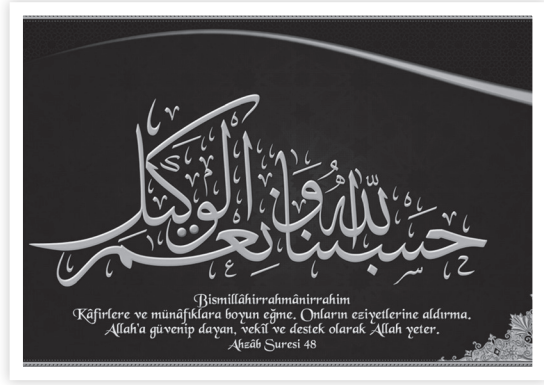 حسبنا الله ونعم الوكيل
Bismillâhirrahmânirrahim
Kâfirlere ve münâfıklara boyun eğme. Onların eziyetlerine aldırma.
Allah'a güvenip dayan, vekîl ve destek olarak Allah yeter.
Ahzâb Suresi 48